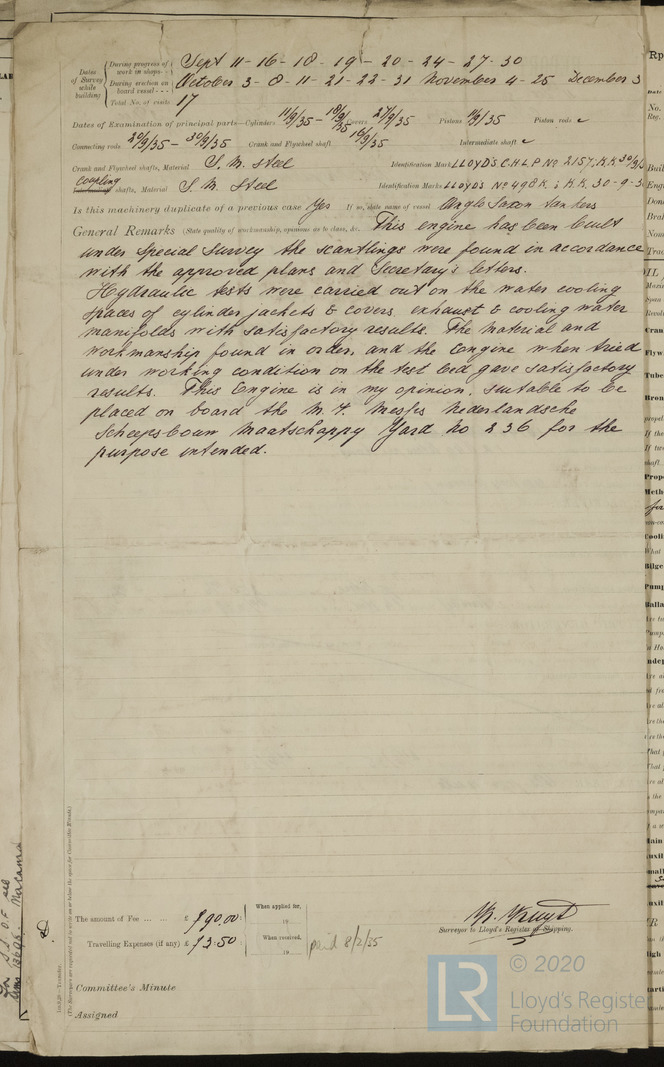 Dates of Survey while building
During progress of work in shops - - Sept 11 - 16 - 18 - 19 - 20 - 24 - 27 - 30
During erection on board vessel - - - October 3 - 8 - 11 - 21 - 22 - 31 November 4 - 25 December 3
Total No. of visits 17
Dates of Examination of principal parts—Cylinders 11/9/35 - 18/9/35 Covers 27/9/35 Pistons 11/9/35 Piston rods
Connecting rods 20/9/35 - 30/9/35 Crank and Flywheel shaft 16/9/35 Intermediate shaft
Crank and Flywheel shafts, Material S. M. Steel Identification Mark LLOYD'S. C.H.L.P No 2157. K.K 30/9/3
Coupling shafts, Material S. M. Steel Identification Mark LLOYD'S No 498 K. K.K. 30-9-3
Is this machinery duplicate of a previous case Yes If so, state name of vessel Anglo Saxon tankers
General Remarks (State quality of workmanship, opinions as to class, &c. This engine has been built
under Special Survey the scantlings were found in accordance
with the approved plans and Secretary's letters.
Hydraulic tests were carried out on the water cooling
spaces of cylinder jackets & covers, exhaust & cooling water
manifolds with satisfactory results. The material and
workmanship found in order, and the Engine when tried
under working condition on the test bed gave satisfactory
results. This Engine is in my opinion, suitable to be
placed on board the Messrs Nederlandsche
Scheepsbouw Maatschappy Yard No 236 for the
purpose intended.
The amount of Fee ... ... £ 90.00 :
Travelling Expenses (if any) £ 3.50 :
When applied for,
19
When received,
19
paid 8/2/35
Surveyor to Lloyd's Register of Shipping.
Committee's Minute
Assigned
(The Surveyors are requested not to write on or below the space for Committee's Minute.)
© 2020
LR
Lloyd's Register
Foundation